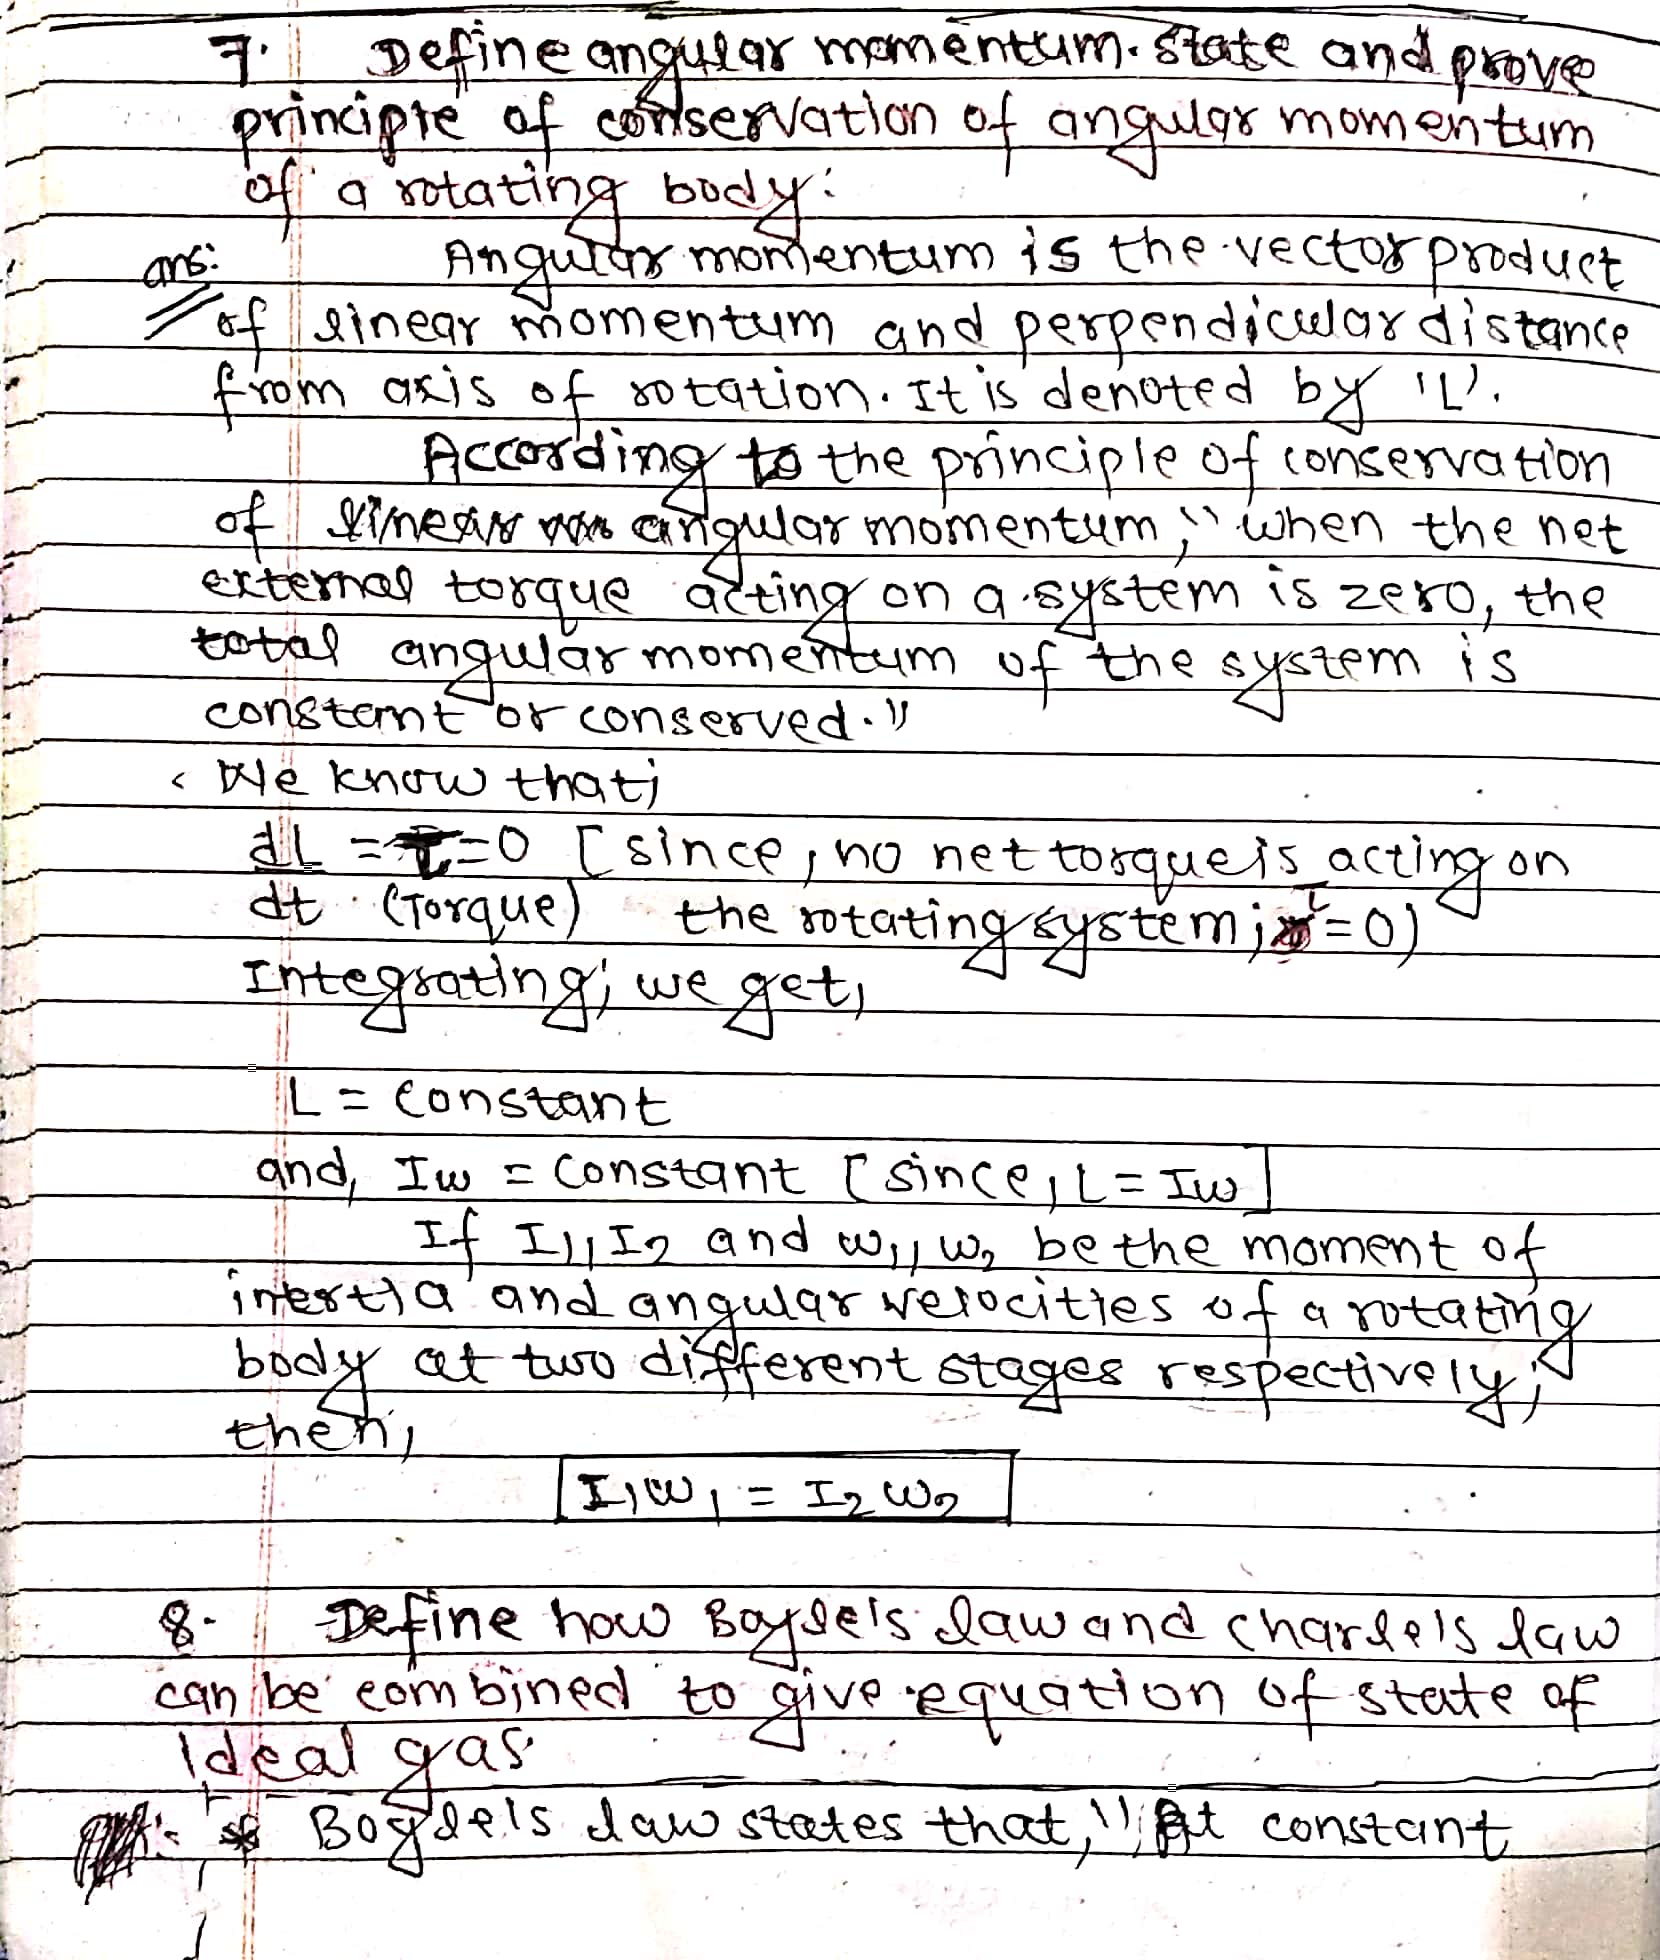 7. Define angular momentum. State and prove
principle of conservation of angular momentum
of a rotating body:
ans: Angular momentum is the vector product
of linear momentum and perpendicular distance
from axis of rotation. It is denoted by 'L'.
According to the principle of conservation
of linear angular momentum, "when the net
external torque acting on a system is zero, the
total angular momentum of the system is
constant or conserved."
We know that;
dL = τ = 0 [since, no net torque is acting on
dt (Torque) the rotating system; τ = 0)
Integrating; we get,
L = constant
and, Iw = constant [since, L = Iw]
If I1, I2 and w1, w2 be the moment of
inertia and angular velocities of a rotating
body at two different stages respectively;
then,
I1w1 = I2w2
8. Define how Boyle's law and charle's law
can be combined to give equation of state of
Ideal gas.
Boyle's law states that, "At constant